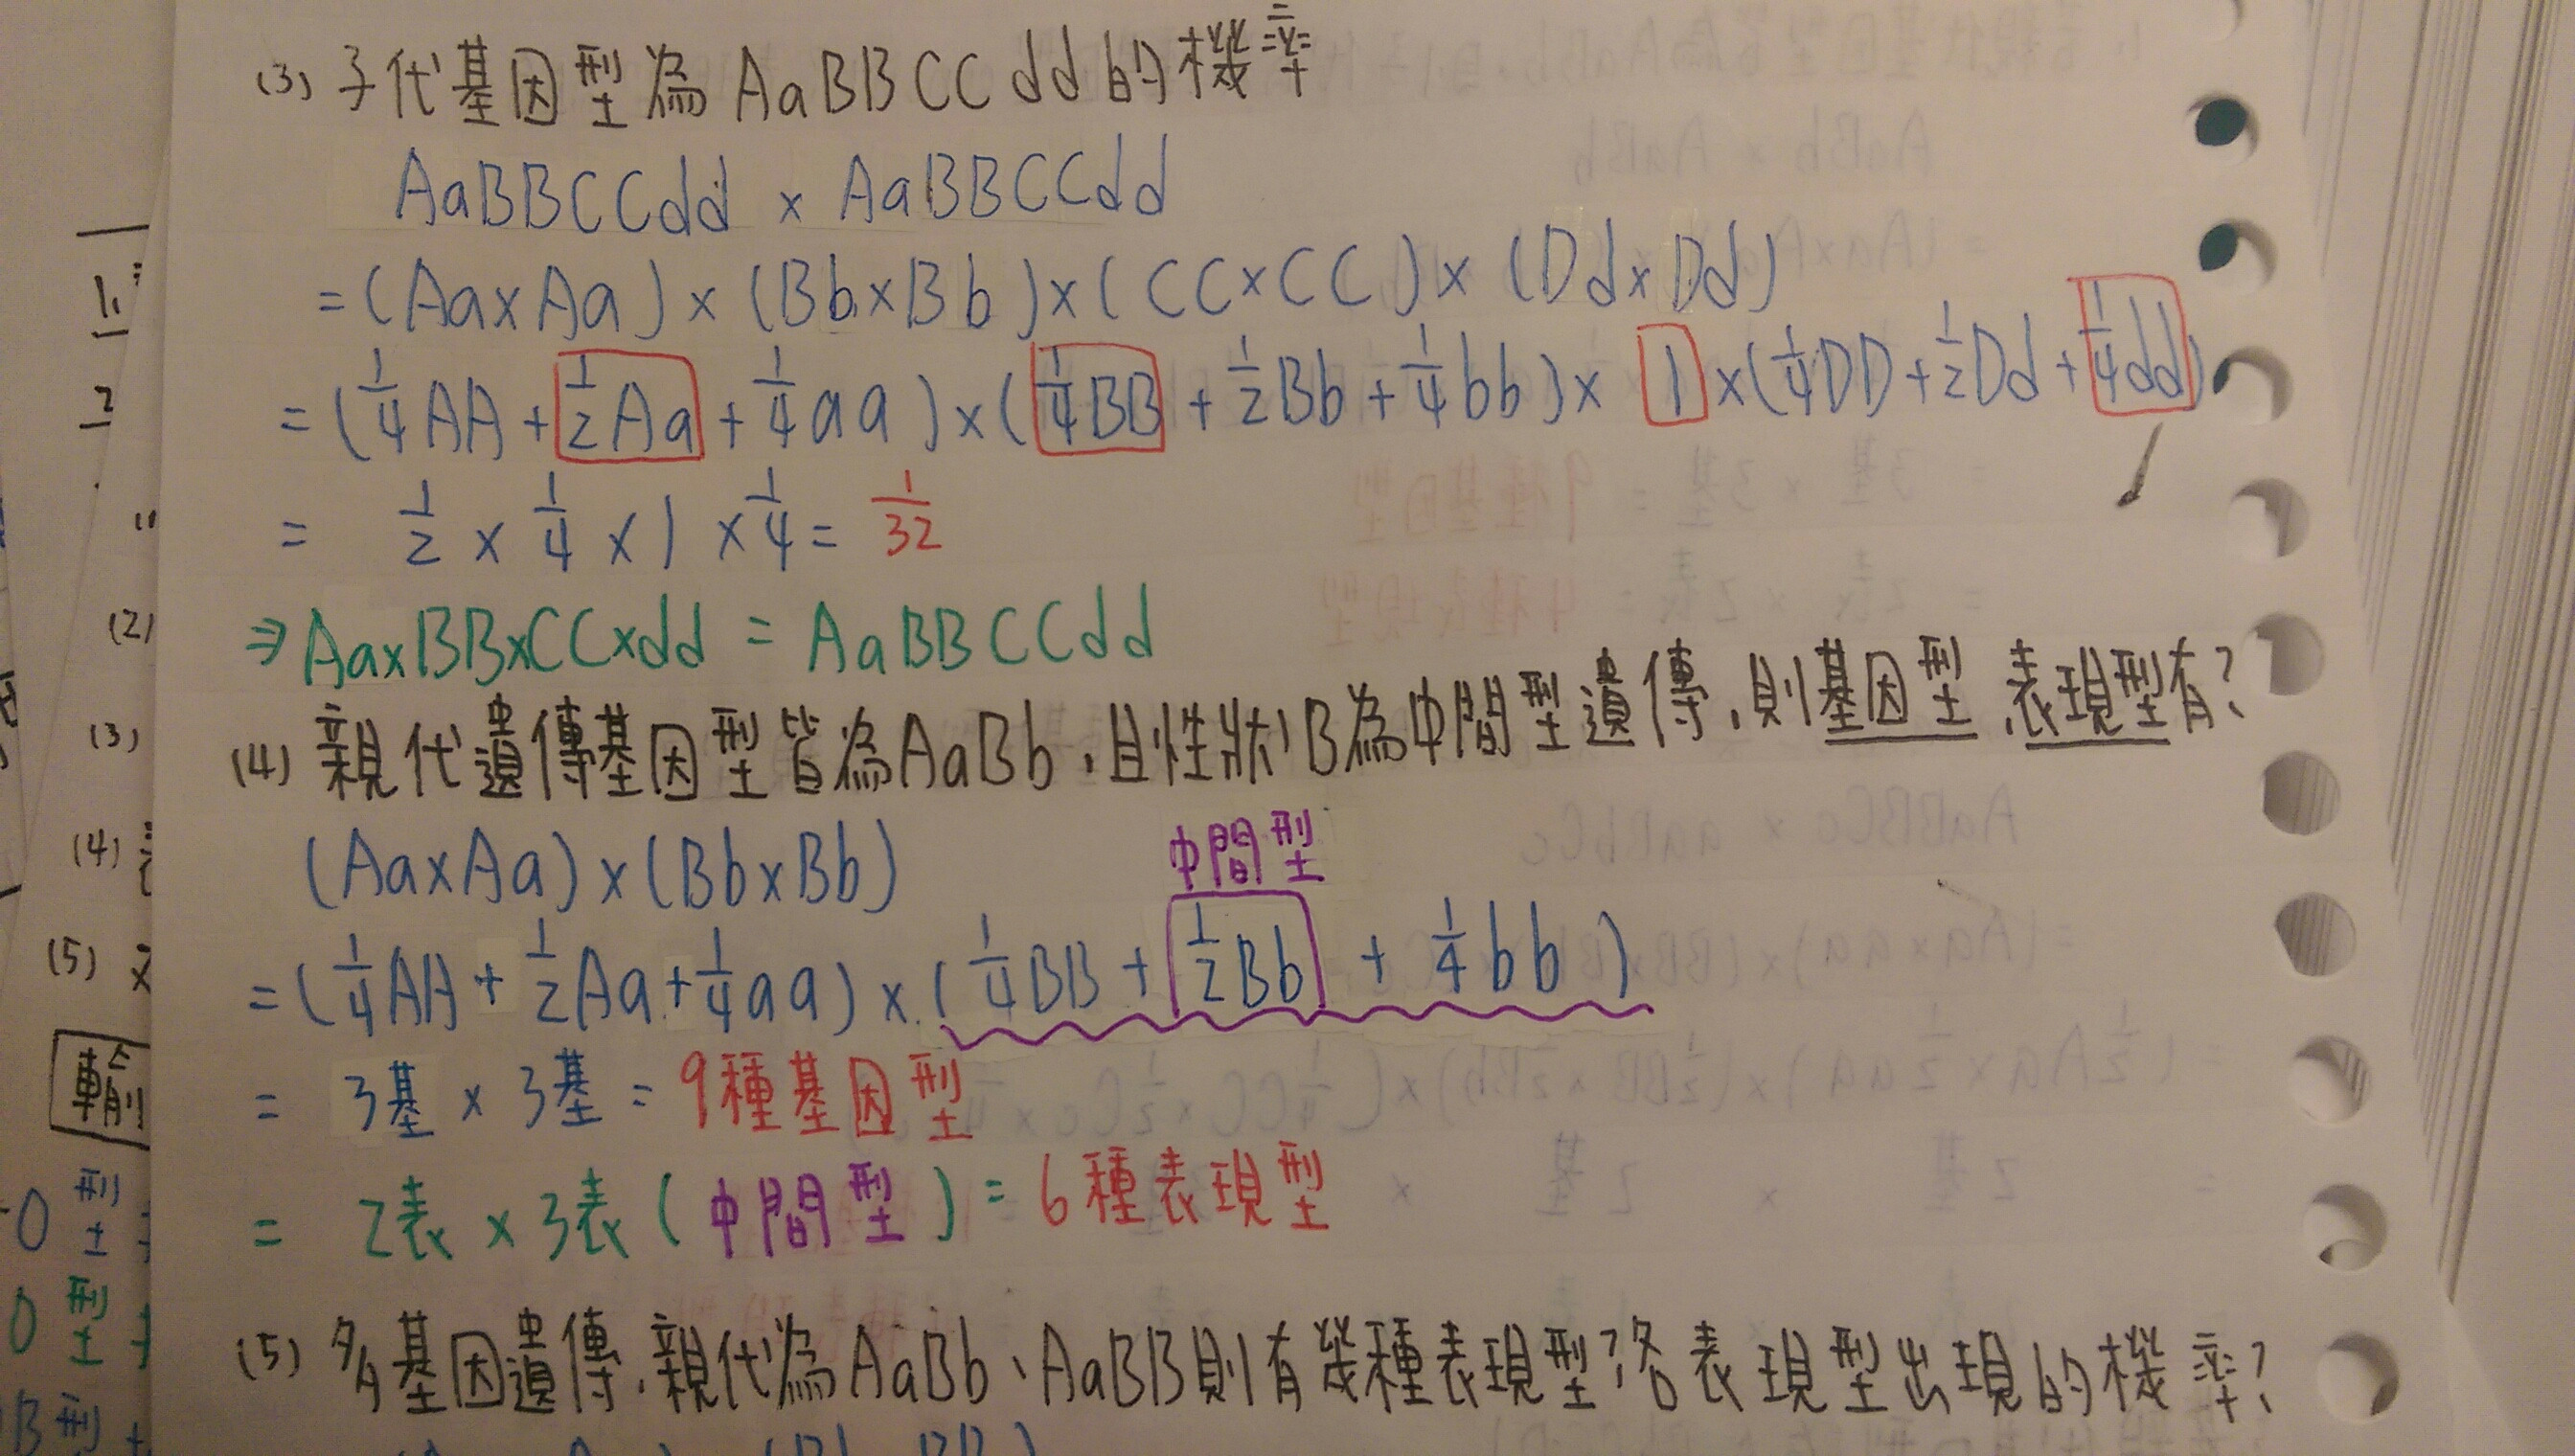 (3) 子代基因型為 AaBBCCdd的機率
AaBBCCdd × AaBBCCdd
=(Aa×Aa)×(Bb×Bb)×(CC×CC)×(Dd×Dd)
=(1/4AA+1/2Aa+1/4aa)×(1/4BB+1/2Bb+1/4bb)×1×(1/4DD+1/2Dd+1/4dd)
= 1/2×1/4×1×1/4=1/32
⇒Aa×BB×CC×dd = AaBBCCdd
(4) 親代遺傳基因型皆為AaBb,且性狀B為中間型遺傳,則基因型、表現型有?
(Aa×Aa)×(Bb×Bb)
中間型
=(1/4AA+1/2Aa+1/4aa)×(1/4BB+1/2Bb+1/4bb)
= 3基×3基=9種基因型
= 2表×3表(中間型)=6種表現型
(5) 多基因遺傳,親代為AaBb、AaBB則有幾種表現型?各表現型出現的機率?
1.
2
(2)
(3)
(4)
(5)
O型
O型
B型